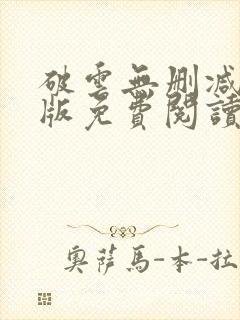 破雲無刪減
版免費閱讀
奧薩馬-本-拉